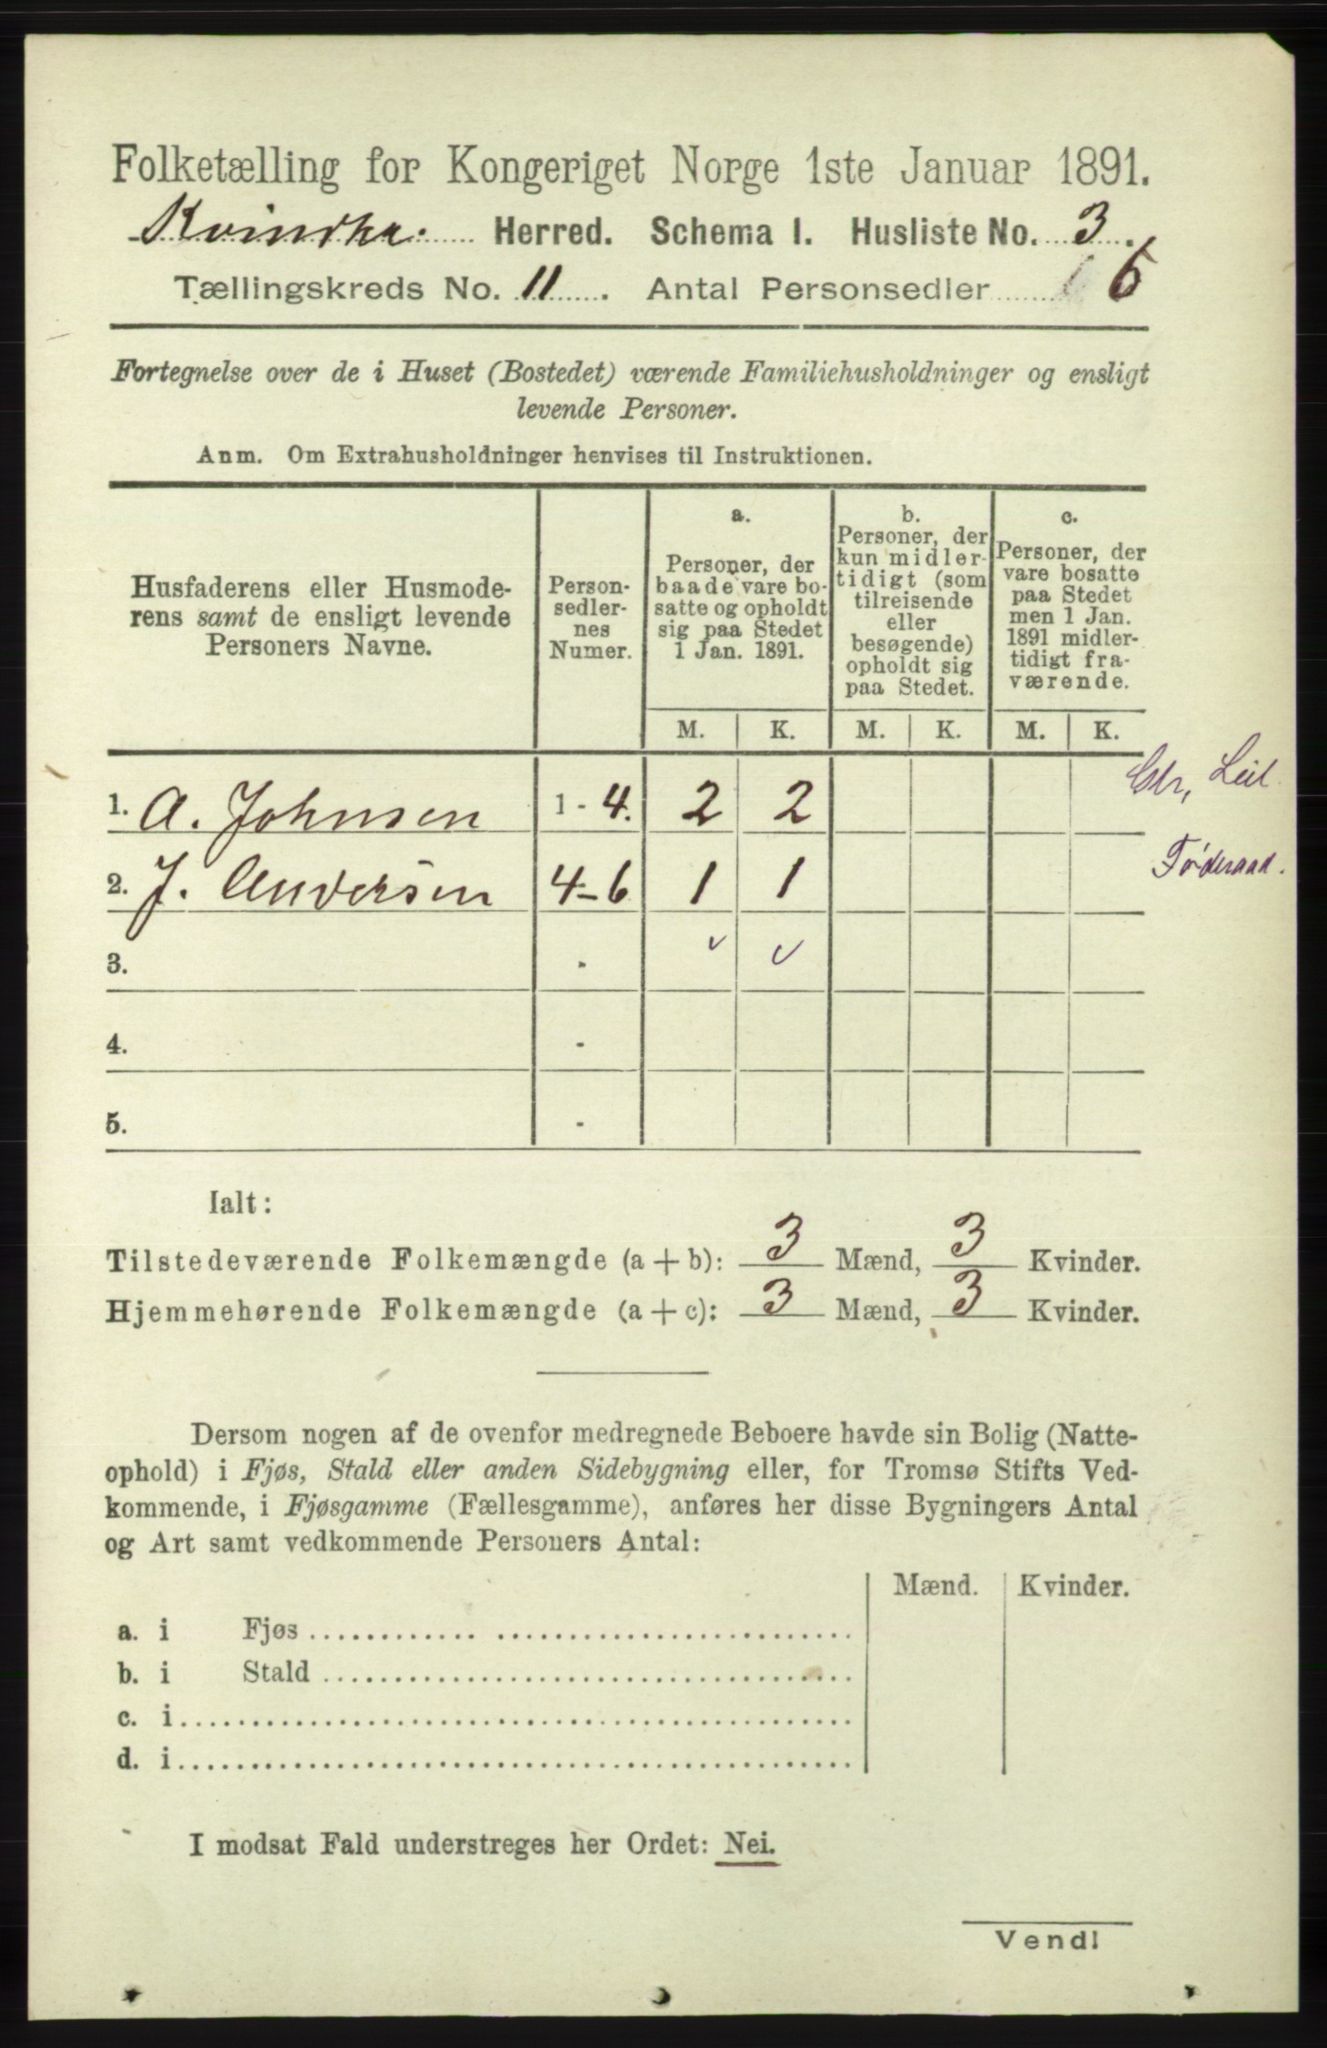 Folketælling for Kongeriget Norge 1ste Januar 1891.
Kvindhr. Herred. Schema I. Husliste No. 3.
Tællingskreds No. 11. Antal Personsedler 6
Fortegnelse over de i Huset (Bostedet) værende Familiehusholdninger og ensligt
levende Personer.
Anm. Om Extrahusholdninger henvises til Instruktionen.
Husfaderens eller Husmode-
rens samt de ensligt levende
Personers Navne.
Person-
sedler-
nes
Numer.
a.
Personer, der
baade vare bo-
satte og opholdt
sig paa Stedet
1 Jan. 1891.
b.
Personer, der
kun midler-
tidigt (som
tilreisende
eller
besøgende)
opholdt sig
paa Stedet.
c.
Personer, der
vare bosatte
paa Stedet
men 1 Jan.
1891 midler-
tidigt fra-
værende.
M. K. M. K. M. K.
1. A. Johnsen 1-4. 2 2 Leil.
2. J. Andersen 4-6 1 1 Føderaad.
3. -
4. -
5. -
Ialt:
Tilstedeværende Folkemængde (a + b): 3 Mænd, 3 Kvinder.
Hjemmehørende Folkemængde (a + c): 3 Mænd, 3 Kvinder.
Dersom nogen af de ovenfor medregnede Beboere havde sin Bolig (Natte-
ophold) i Fjøs, Stald eller anden Sidebygning eller, for Tromsø Stifts Ved-
kommende, i Fjøsgamme (Fællesgamme), anføres her disse Bygningers Antal
og Art samt vedkommende Personers Antal:
Mænd. Kvinder.
a. i Fjøs
b. i Stald
c. i
d. i
I modsat Fald understreges her Ordet: Nei.
Vend!